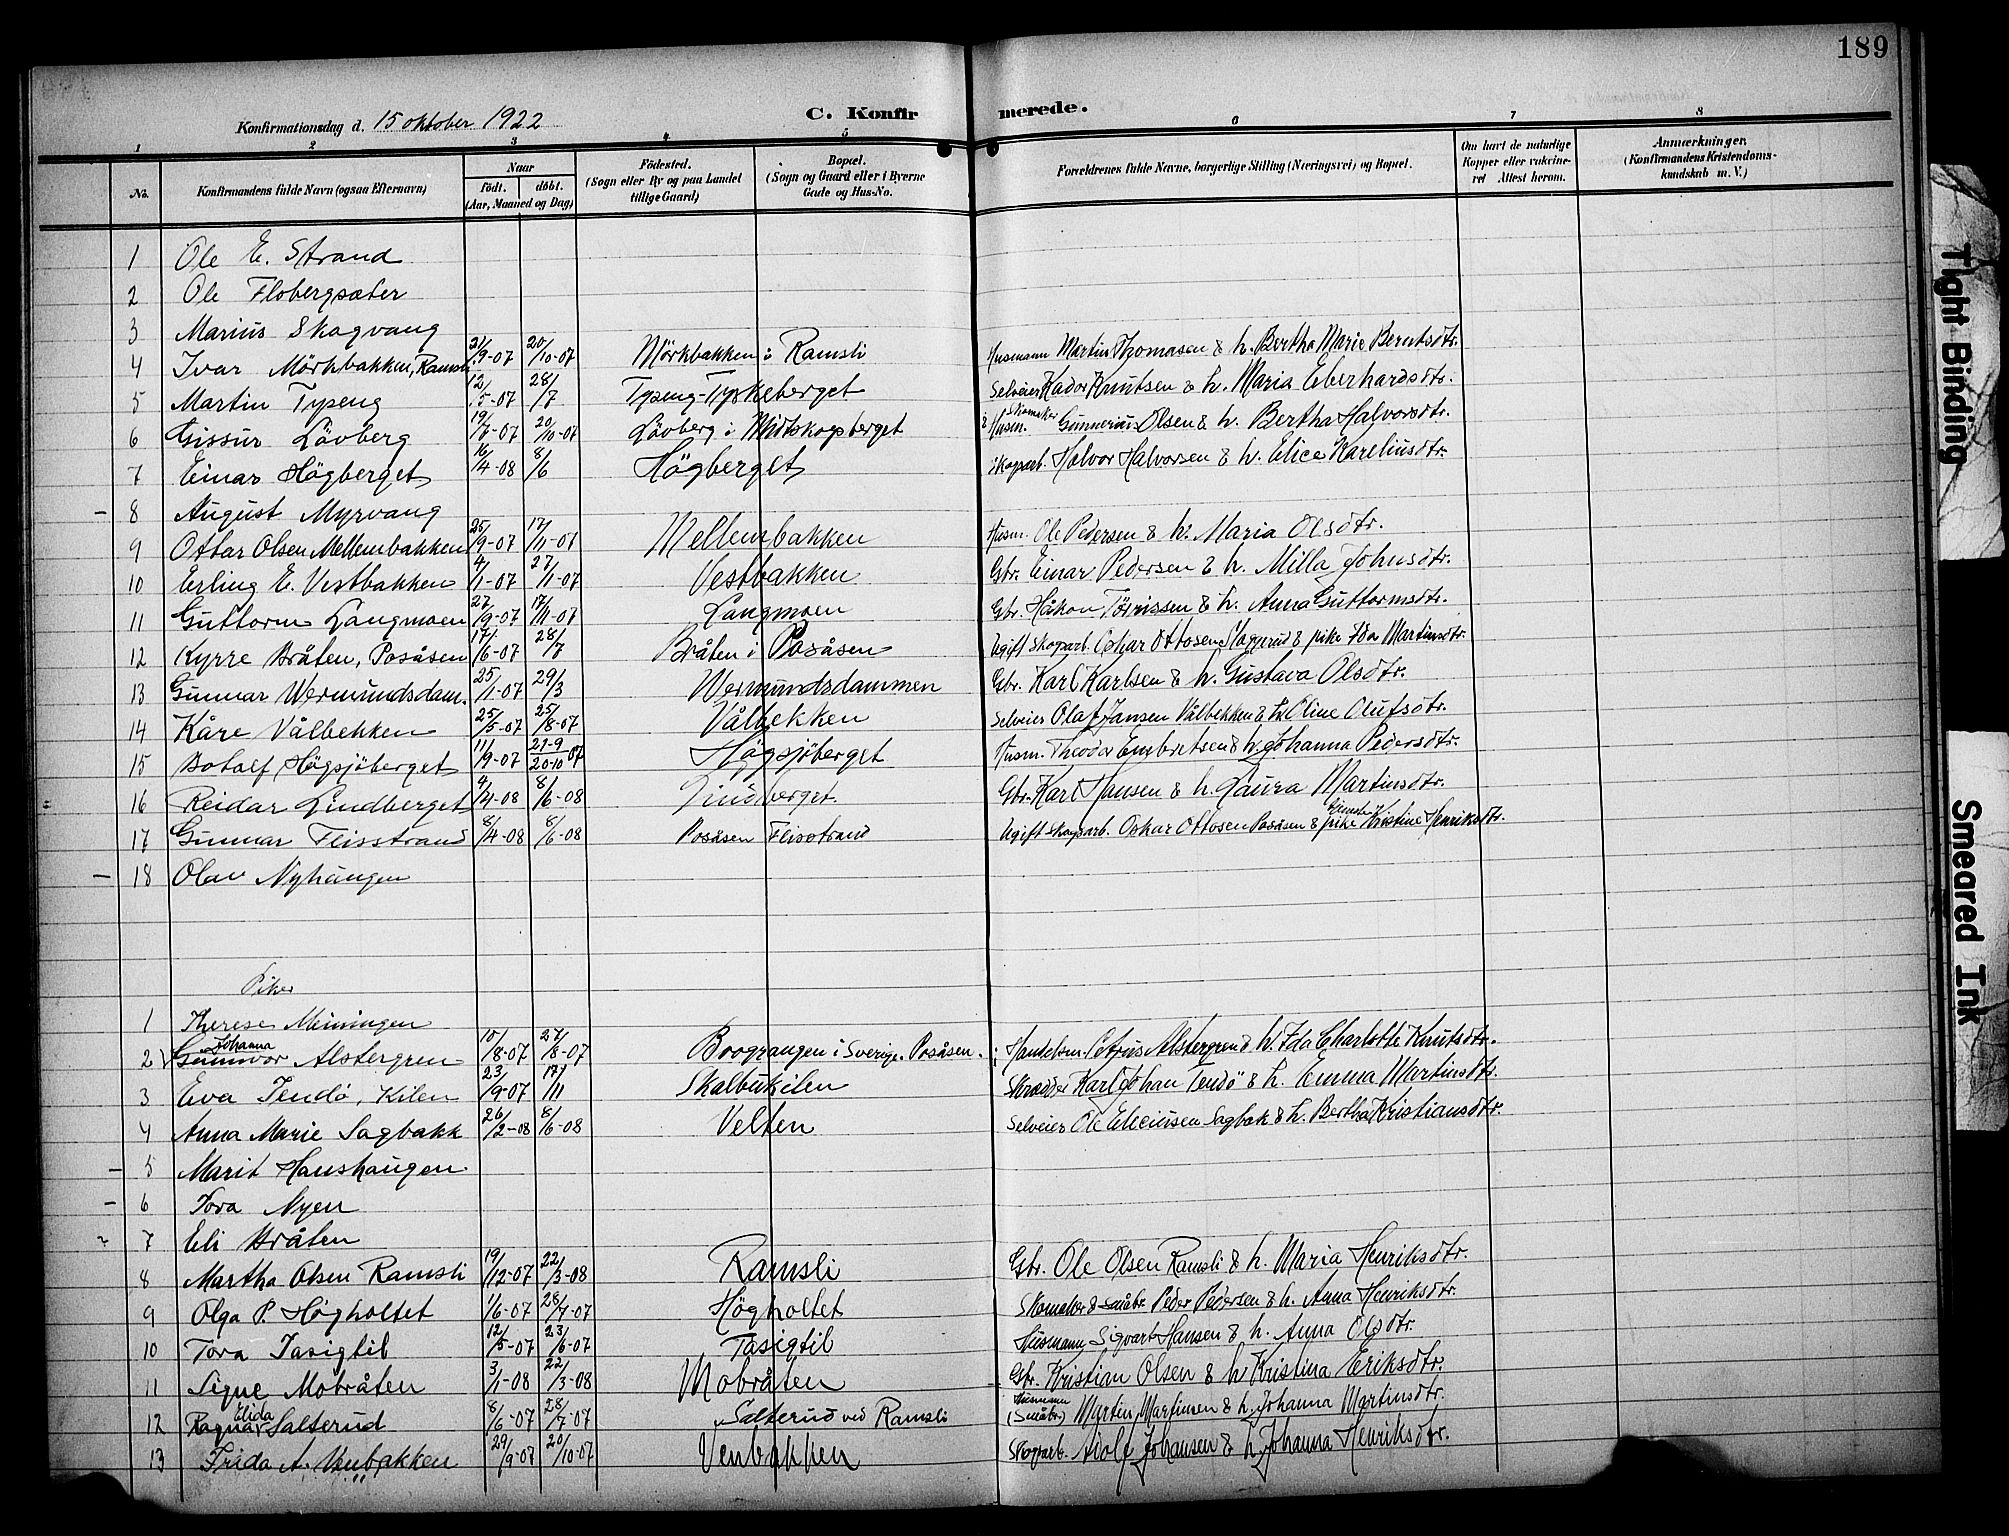 189
C. Konfirmerede.
Konfirmationsdag d. 15 oktober 1922
1 2 3 4 5 6 7 8
No. Konfirmandens fulde Navn (ogsaa Efternavn) Naar født. døbt. (Aar, Maaned og Dag) Födested. (Sogn eller By og paa Landet tillige Gaard) Bopæl. (Sogn og Gaard eller i Byerne Gade og Hus-No. Forældrenes fulde Navne, borgerlige Stilling (Næringsvei) og Bopæl. Om havt de naturlige Kopper eller vakcineret Attest herom. Anmærkninger. (Konfirmandens Kristendomskundskab m. V.)
1 Ole E. Strand
2 Ole Flobergsæter
3 Marius Skogvang
4 Ivar Mörkbakken, Ramsli 21/9-07 20/10-07 Mörkbakken i Ramsli Husmann Martin Thomasen & h. Bertha Marie Berntsdtr.
5 Martin Typeng 12/5-07 28/7 Typeng-Tyskeberget Selveier Kador Knutsen & h. Maria Eberhardsdtr.
6 Gissur Lövberg 19/7-07 20/10-07 Lövberg i Midtskogsberget Skomaker & Husm. Gunnerius Olsen & h. Bertha Halvorsdtr.
7 Einar Högberget 16/4-08 8/6 Högberget Skogarb. Halvor Halvorsen & h. Elice Kareliusdtr.
– 8 August Myrvang
9 Ottar Olsen Mellembakken 25/9-07 17/11-07 Mellembakken Husm. Ole Pedersen & h. Maria Olsdtr.
10 Erling E. Vestbakken 4/1-07 27/11-07 Vestbakken Gbr. Einar Pedersen & h. Milla Johnsdtr.
11 Guttorm Langmoen 27/9-07 17/11-07 Langmoen Gbr. Håkon Törrissen & h. Anna Guttormsdtr.
12 Kyrre Bråten, Posåsen 17/6-07 28/7 Bråten i Posåsen Ugift Skogarb. Oskar Ottosen & pike Ida Martinsdtr.
13 Gunnar Wermundsdam. 25/1-07 29/3 Wermundsdammen Gbr. Karl Karlsen & h. Gustava Olsdtr.
14 Kåre Vålbekken 25/5-07 25/8-07 Vålbekken Selveier Olaf Jansen Vålbekken & h. Oline Olufsdtr.
15 Botolf Högsjöberget 11/9-07 21-9 20-10 07 Högsjöberget Husm. Theodor Embretsen & h. Johanna Pedersdtr.
16 Reidar Lindberget 4/4-08 8/6-08 Lindberget Gbr. Karl Hansen & h. Laura Martinsdtr.
17 Gunnar Flisstrand 8/4-08 8/6-08 Posåsen Flisstrand Ugift Skogarb. Oskar Ottosen Posåsen & pike Kristine Henriksdtr.
– 18 Olav Nyhaugen
Piker
1 Therese Meiningen
2 Gunnvor Johanna Alstergren 15/8-07 27/8-07 Bograngen i Sverige. Posåsen. Handelsm. Petrus Alstergren & h. Ida Charlotte Knutsdtr.
3 Eva Tendö, Kilen 23/9-07 17/11 Skalbukilen Skrædder Karl Johan Tendö & h. Emma Martinsdtr.
4 Anna Marie Sagbakk 26/2-08 8/6-08 Velten Selveier Ole Elieiusen Sagbak & h. Bertha Kristiansdtr.
– 5 Marit Hanshaugen
– 6 Tora Nyen
7 Eli Bråten
8 Martha Olsen Ramsli 19/12-07 22/3-08 Ramsli Gbr. Ole Olsen Ramsli & h. Maria Henriksdtr.
9 Olga P. Högholtet 1/6-07 28/7-07 Högholtet Skomaker & småbr. Peder Pedersen & h. Anna Henriksdtr.
10 Tora Tasigtil 12/5-07 23/6-07 Tasigtil Husmann Sigvart Hansen & h. Anna Olsdtr.
11 Signe Mobråten 3/1-08 22/3-08 Mobråten Gbr. Kristian Olsen & h. Kristina Eriksdtr.
12 Ragna Elida Salterud 8/6-07 28/7-07 Salterud ved Ramsli Husmann (Småbr) Martin Martinsen & h. Johanna Martinsdtr.
13 Frida A. Venbakken 29/9-07 20/10-07 Venbakken Skogarb. Adolf Johansen & h. Johanna Henriksdtr.
Tight Binding
Smeared Ink